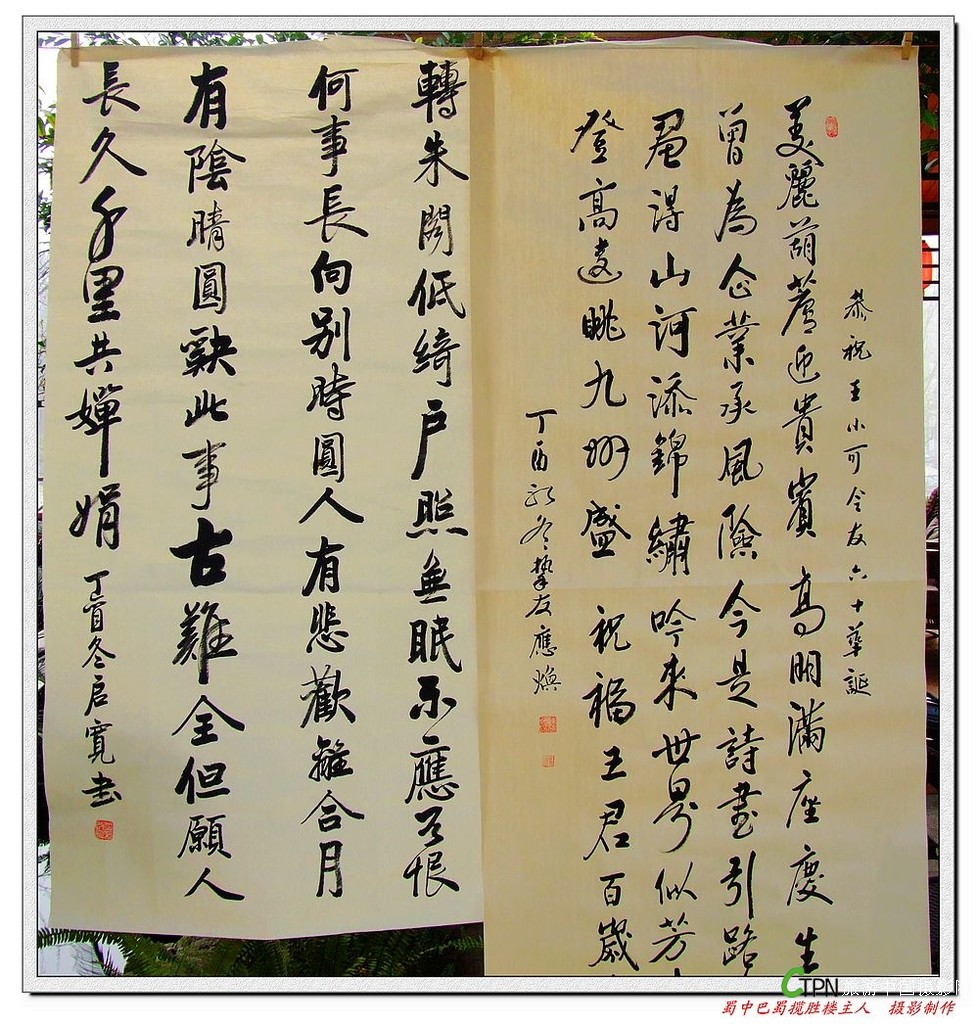 恭祝王小可令友六十華誕
美麗葫蘆迎貴賓 高朋滿座慶生
曾為企業承風險今是詩畫引路
贏得山河添錦繡吟來世界似芳
登高遠眺九州盛 祝福王君百歲
丁酉初冬摯友應煥
轉朱閣低綺戶照無眠不應有恨
何事長向別時圓人有悲歡離合月
有陰晴圓缺此事古難全但願人
長久千里共嬋娟 丁酉冬启寬书
CTPN
蜀中巴蜀揽胜楼主人 摄影制作